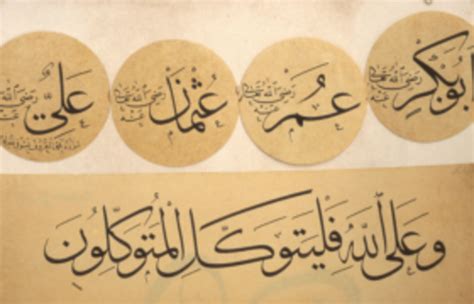 ابوبكر رضي الله تعالى عنه
عمر رضي الله تعالى عنه
عثمان رضي الله تعالى عنه
علي رضي الله تعالى عنه
وعلى الله فليتوكل المتوكلون